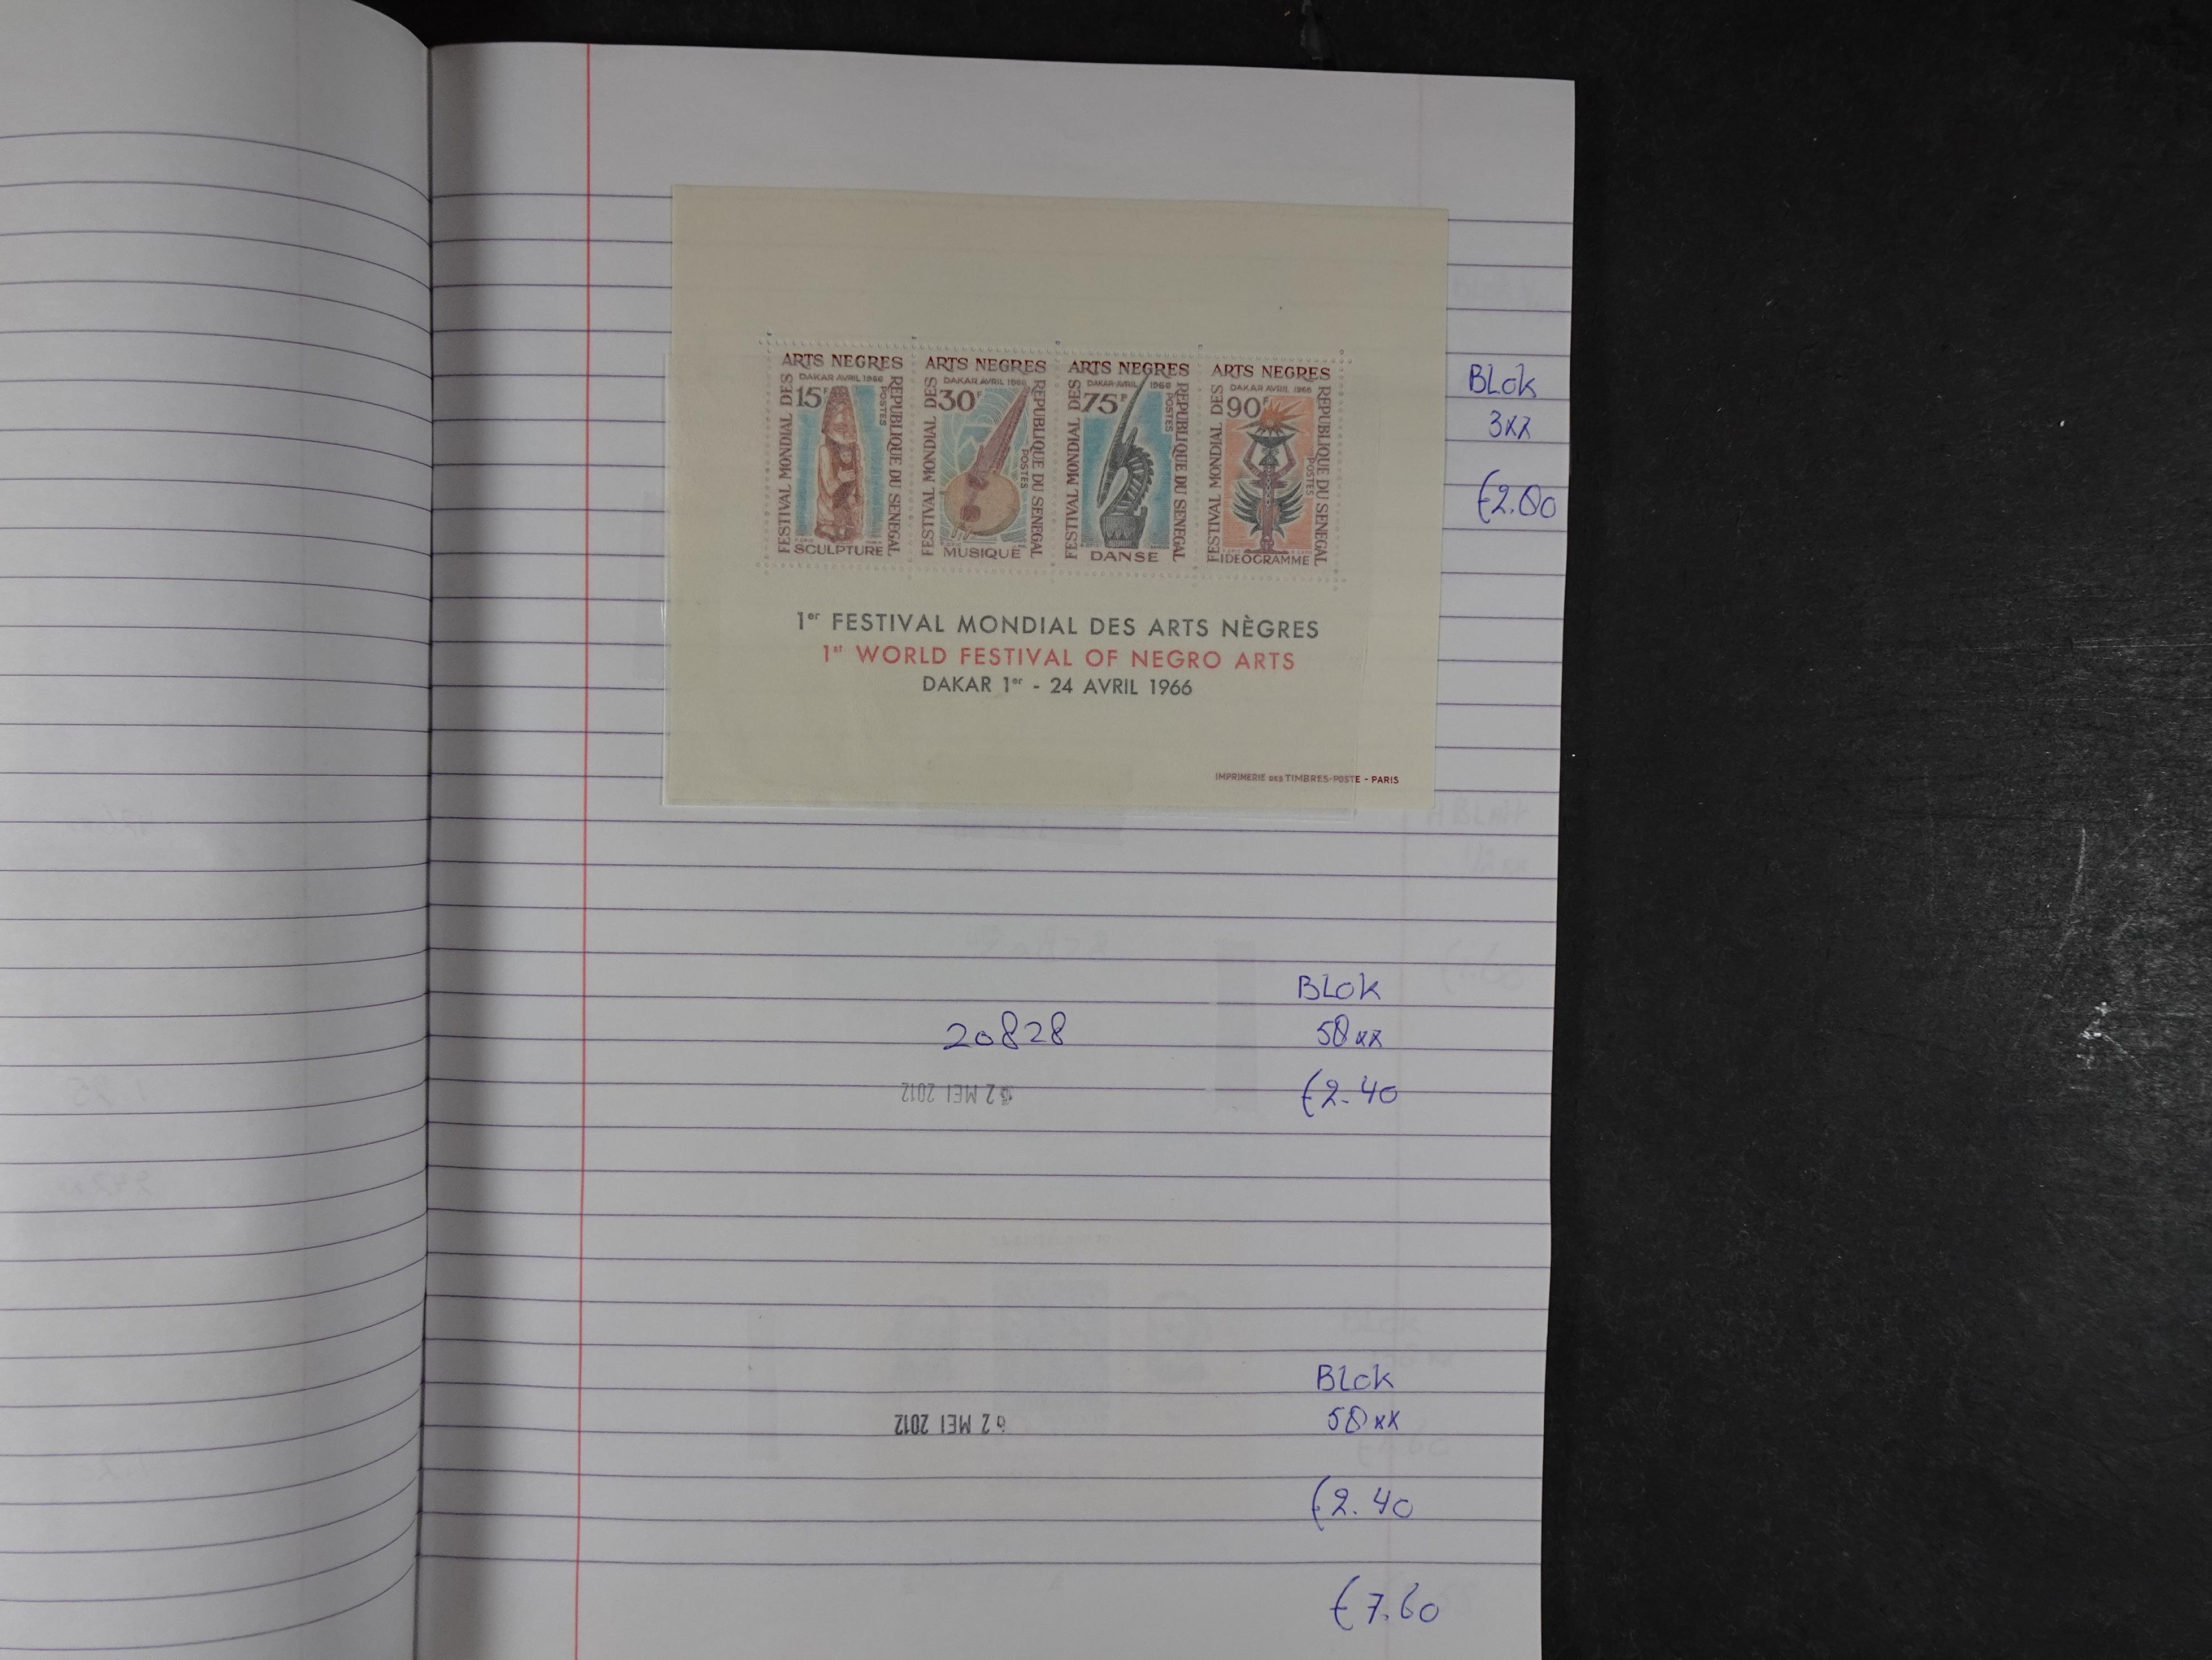 ARTS NEGRES
DAKAR AVRIL 1966
15F
POSTES
FESTIVAL MONDIAL DES
REPUBLIQUE DU SENEGAL
SCULPTURE
ARTS NEGRES
DAKAR AVRIL 1966
30F
POSTES
FESTIVAL MONDIAL DES
REPUBLIQUE DU SENEGAL
MUSIQUE
ARTS NEGRES
DAKAR-AVRIL 1966
75F
POSTES
FESTIVAL MONDIAL DES
REPUBLIQUE DU SENEGAL
DANSE
ARTS NEGRES
DAKAR AVRIL 1966
90F
POSTES
FESTIVAL MONDIAL DES
REPUBLIQUE DU SENEGAL
IDEOGRAMME
1er FESTIVAL MONDIAL DES ARTS NÈGRES
1st WORLD FESTIVAL OF NEGRO ARTS
DAKAR 1er - 24 AVRIL 1966
IMPRIMERIE DES TIMBRES-POSTE - PARIS
BLok
3xx
€2.80
BLok
20828
58xx
2 MEI 2012
€2.40
Blok
58xx
2 MEI 2012
€2.40
€7.60